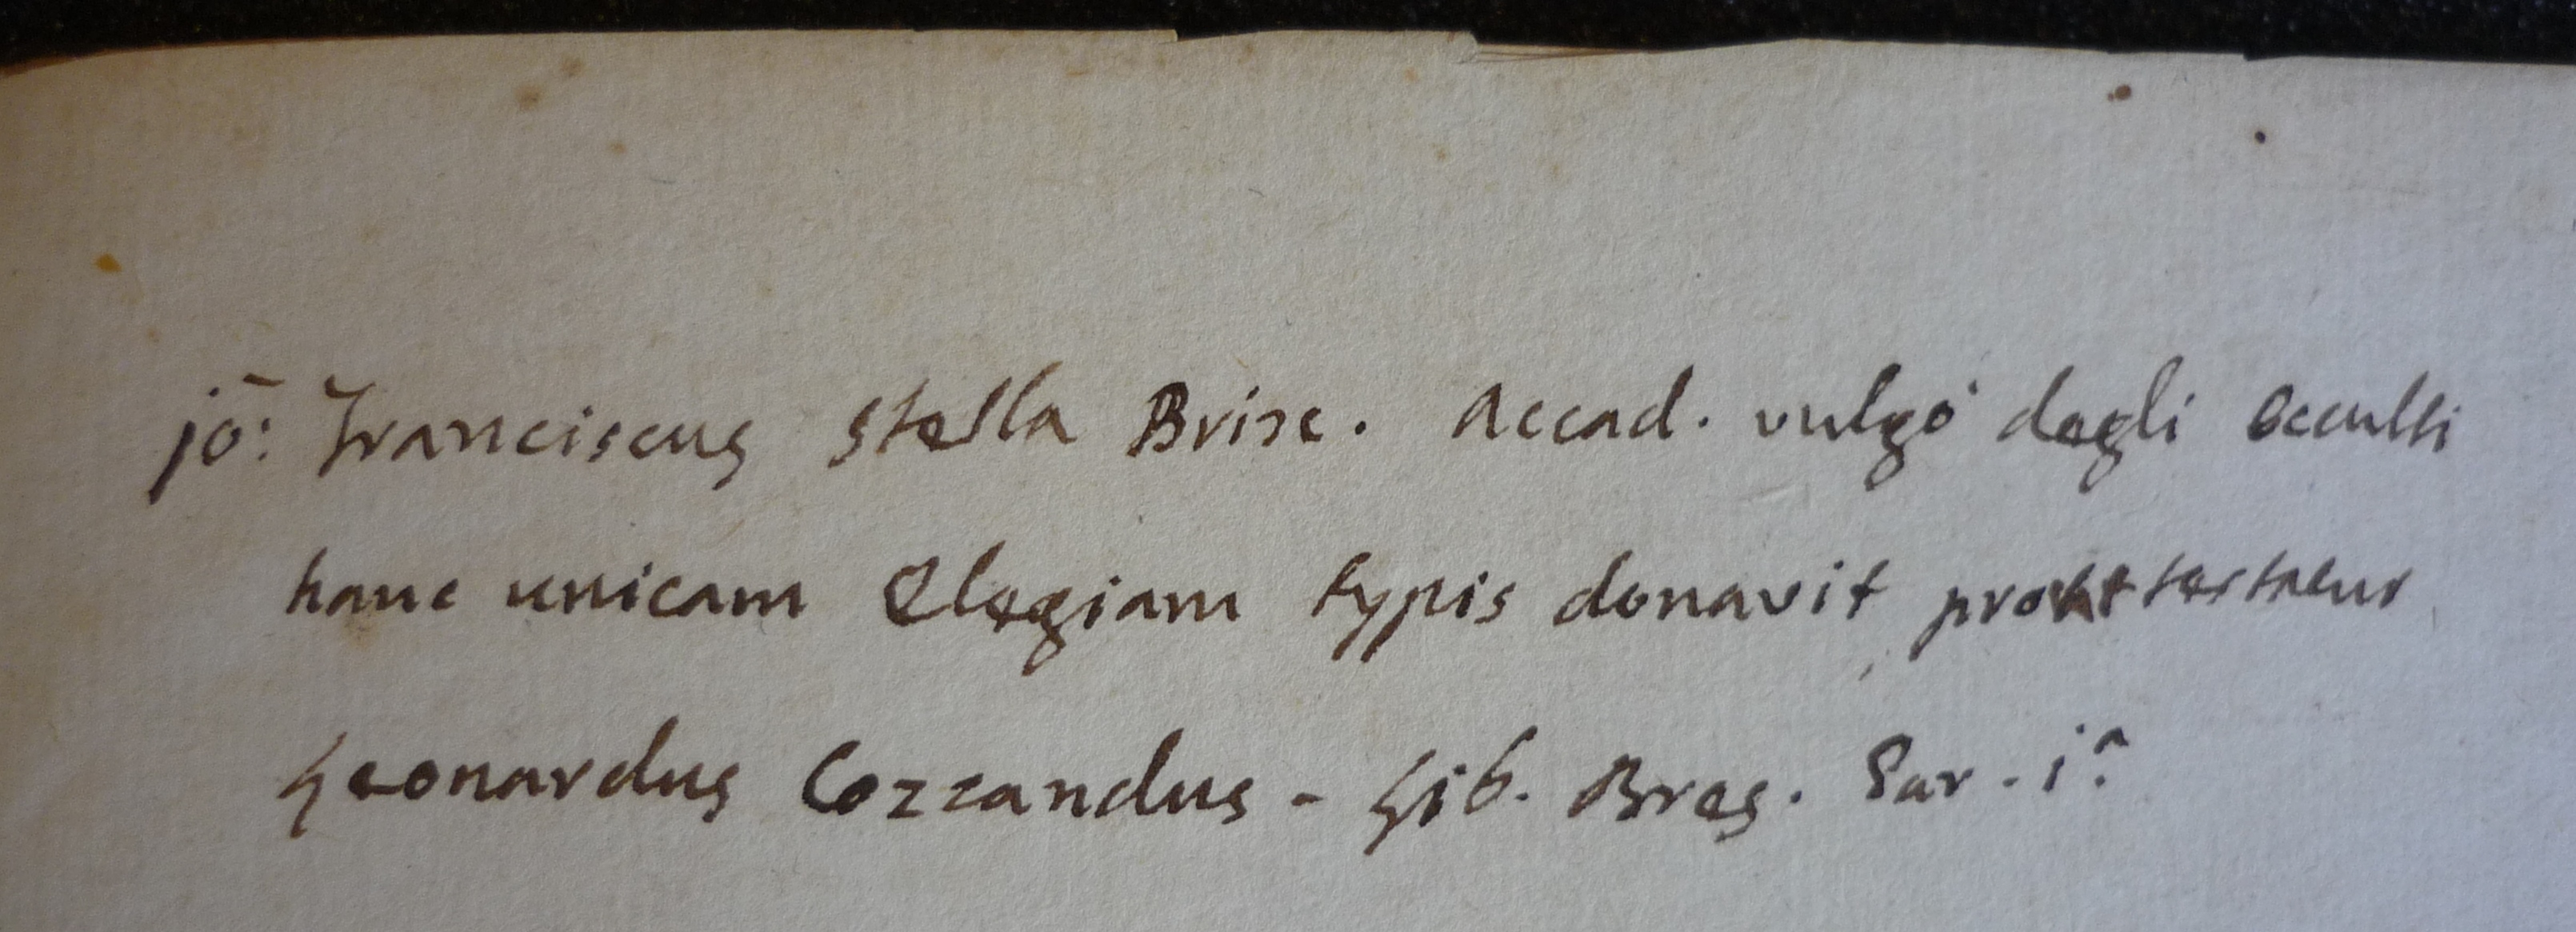 jō: Franciscus Stella Brix. Accad. vulgò degli Occulti
hanc unicam Elegiam typis donavit
Leonardus Cozzandus - Lib. Bres. Par. iᵃ